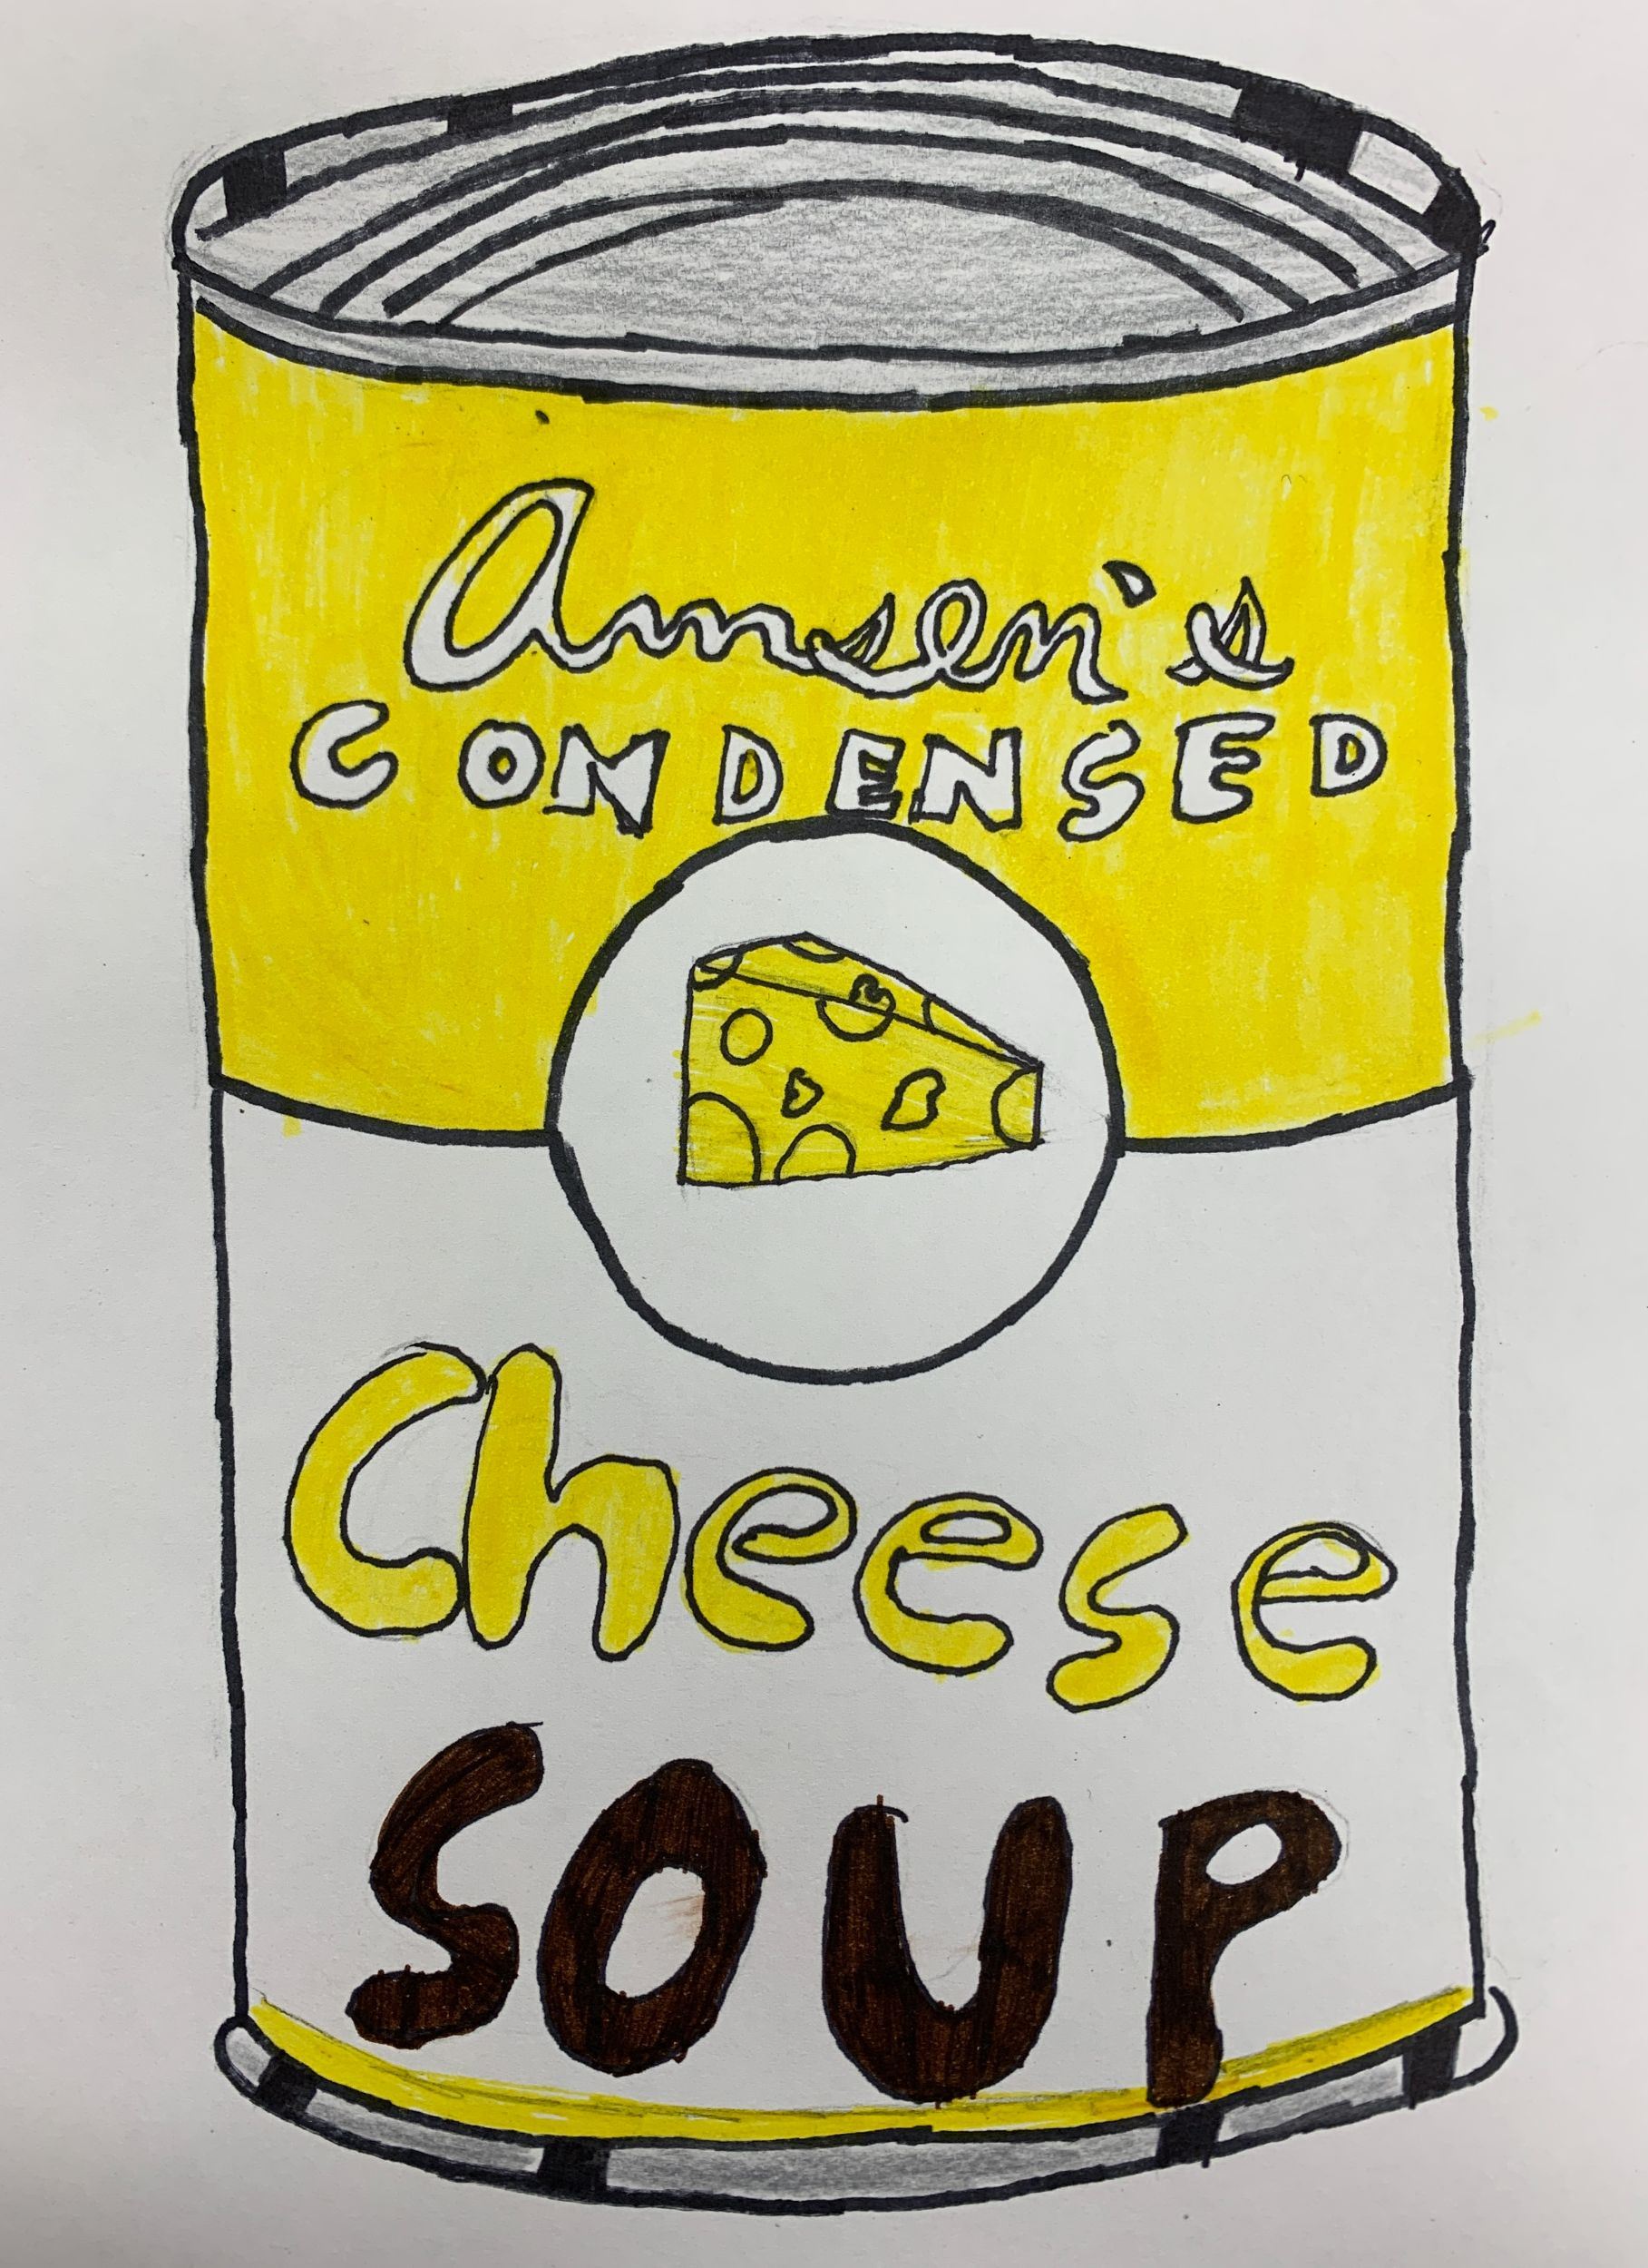 Amsen's
CONDENSED
Cheese
SOUP